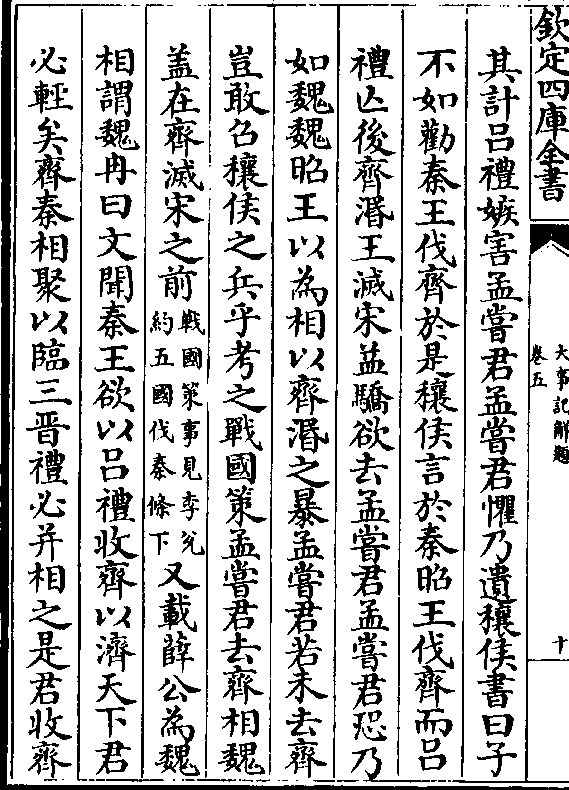 欽定四庫全書
大事記解題
卷五
十
其計呂禮嫉害孟嘗君孟嘗君懼乃遺穰侯書曰子
不如勸秦王伐齊於是穰侯言於秦昭王伐齊而呂
禮亾後齊湣王滅宋益驕欲去孟嘗君孟嘗君恐乃
如魏魏昭王以為相以齊湣之暴孟嘗君若未去齊
豈敢召穰侯之兵乎考之戰國策孟嘗君去齊相魏
蓋在齊滅宋之前戰國策事見李兊約五國伐秦條下又載薛公為魏
相謂魏冉曰文聞秦王欲以呂禮收齊以濟天下君
必輕矣齊秦相聚以臨三晉禮必并相之是君收齊